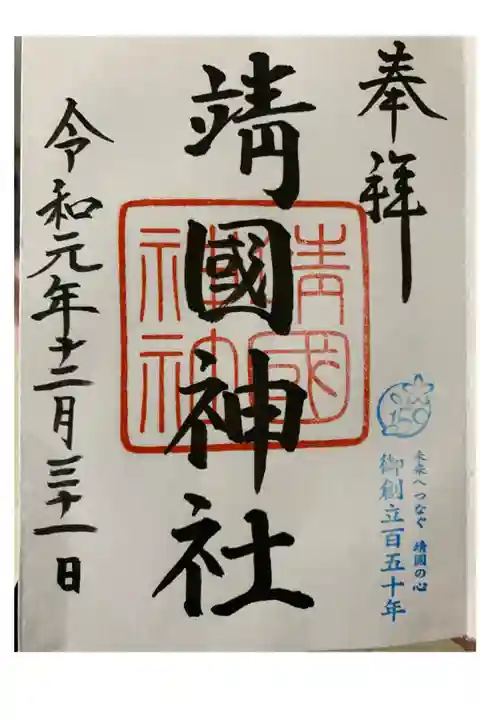 奉拝
靖國神社
靖國神社
令和元年十二月三十一日
150
未来へつなぐ 靖國の心
御創立百五十年